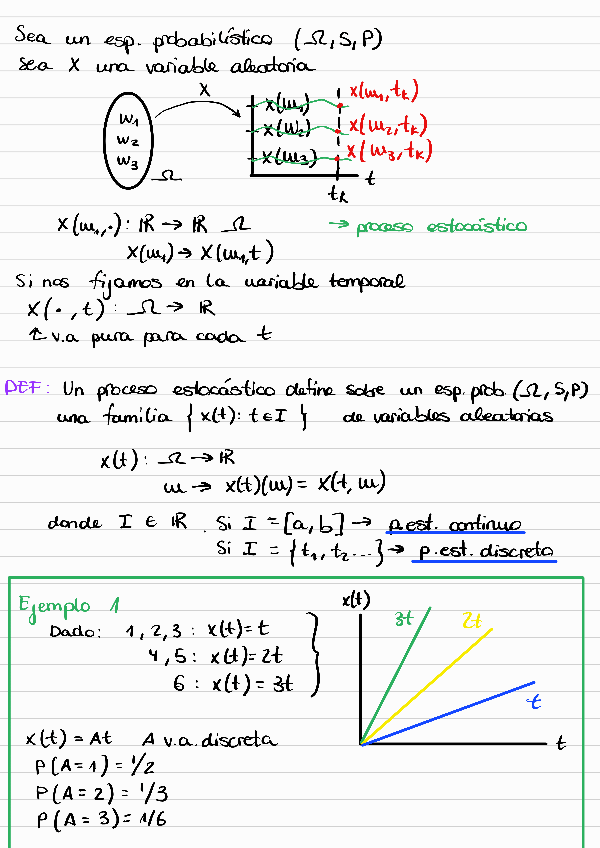 Sea un esp. probabilístico (Ω, S, P)
Sea X una variable aleatoria
X
w₁
w₂
w₃
Ω
x(w₁)
x(w₂)
x(w₃)
x(w₁, tₖ)
x(w₂, tₖ)
x(w₃, tₖ)
tₖ
t
X(w₁, ·): ℝ → ℝ Ω
→ proceso estocástico
X(w₁) → X(w₁, t)
Si nos fijamos en la variable temporal
X( · , t) : Ω → ℝ
↑ v.a pura para cada t
DEF: Un proceso estocástico define sobre un esp. prob. (Ω, S, P)
una familia { x(t): t ∈ I } de variables aleatorias
x(t) : Ω → ℝ
w → x(t)(w) = X(t, w)
donde I ∈ ℝ . Si I = [a, b] → p.est. continuo
Si I = {t₁, t₂ ...} → p.est. discreto
Ejemplo 1
Dado: 1, 2, 3 : x(t) = t
4, 5 : x(t) = 2t
6 : x(t) = 3t
x(t)
3t
2t
t
t
x(t) = At A v.a. discreta
P(A = 1) = 1/2
P(A = 2) = 1/3
P(A = 3) = 1/6